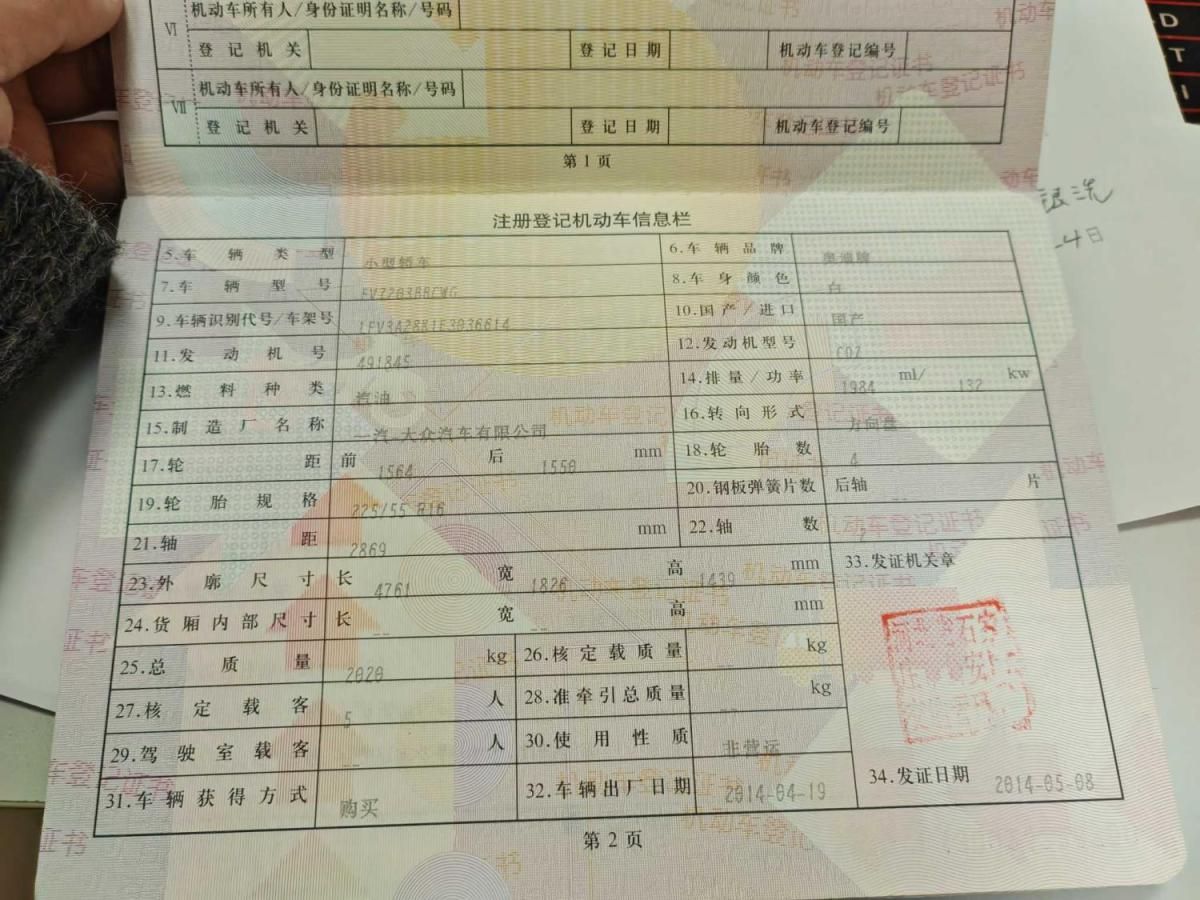 VI 机动车所有人/身份证明名称/号码
登记机关 登记日期 机动车登记编号
VII 机动车所有人/身份证明名称/号码
登记机关 登记日期 机动车登记编号
第1页
注册登记机动车信息栏
5.车辆类型 小型轿车 6.车辆品牌 奥迪牌
7.车辆型号 FV7203BBCWG 8.车身颜色 白
9.车辆识别代号/车架号 10.国产/进口 国产
11.发动机号 491845 12.发动机型号 CDZ
13.燃料种类 汽油 14.排量/功率 1984 ml/ 132 kw
15.制造厂名称 一汽-大众汽车有限公司 16.转向形式 方向盘
17.轮距 前 1564 后 1550 mm 18.轮胎数 4
19.轮胎规格 225/55 R16 20.钢板弹簧片数 后轴 -- 片
21.轴距 2869 mm 22.轴数
23.外廓尺寸 长 4761 宽 1826 高 1439 mm 33.发证机关章
24.货厢内部尺寸 长 -- 宽 -- 高 -- mm
25.总质量 2020 kg 26.核定载质量 -- kg
27.核定载客 5 人 28.准牵引总质量 -- kg
29.驾驶室载客 -- 人 30.使用性质 非营运
31.车辆获得方式 购买 32.车辆出厂日期 2014-04-19 34.发证日期 2014-05-08
第2页